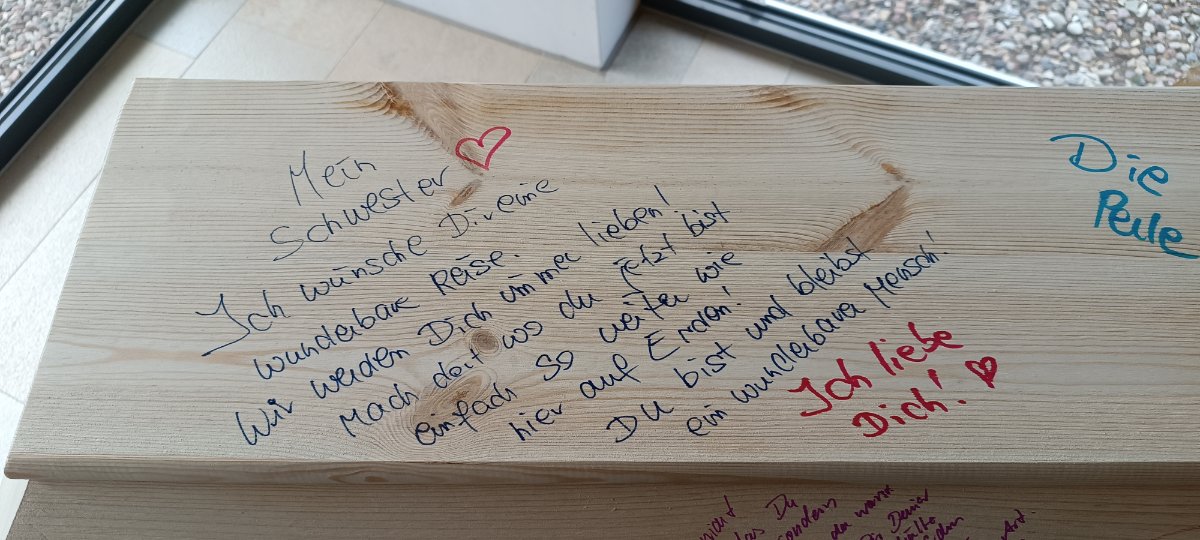 Mein
Schwester
Ich wünsche Dir eine
wunderbare Reise.
Wir werden Dich immer lieben!
Mach dort wo du jetzt bist
einfach so weiter wie
hier auf Erden!
Du bist und bleibst
ein wunderbarer Mensch!
Ich liebe
Dich!
Die
Perle
nicht
das Du
sondern
da warst
Deiner